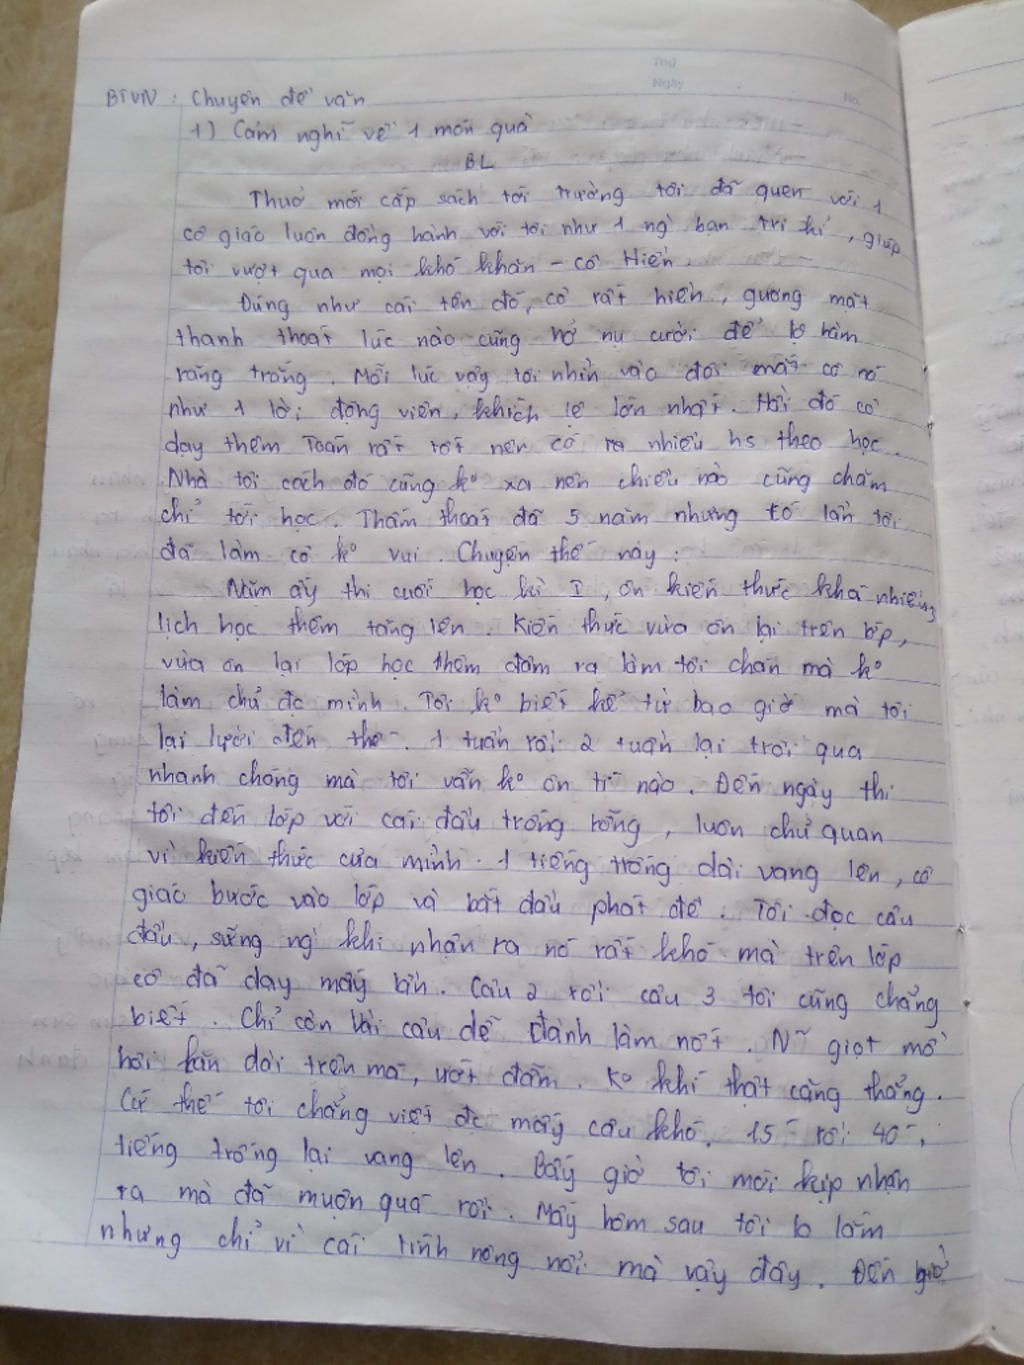 Thứ
Ngày
No.
BTVN : Chuyên đề văn
1) Cảm nghĩ về 1 món quà
BL
Thuở mới cắp sách tới trường tôi đã quen với 1
cô giáo luôn đồng hành với tôi như 1 ng` bạn tri kỉ, giúp
tôi vượt qua mọi khó khăn - cô Hiền.
Đúng như cái tên đó, cô rất hiền, gương mặt
thanh thoát lúc nào cũng nở nụ cười để lộ hàm
răng trắng. Mỗi lúc vậy tôi nhìn vào đôi mắt cô nó
như 1 lời động viên, khích lệ lớn nhất. Hồi đó cô
dạy thêm Toán rất tốt nên có ra nhiều hs theo học.
Nhà tôi cách đó cũng ko xa nên chiều nào cũng chăm
chỉ tới học. Thấm thoát đã 5 năm nhưng có lần tôi
đã làm cô ko vui. Chuyện thế này:
Năm ấy thi cuối học kì I, ôn kiến thức khá nhiều,
lịch học thêm tăng lên. Kiến thức vừa ôn lại trên lớp,
vừa ôn lại lớp học thêm đâm ra làm tôi chán mà ko
làm chủ đc mình. Tôi ko biết kể từ bao giờ mà tôi
lại lười đến thế. 1 tuần rồi 2 tuần lại trôi qua
nhanh chóng mà tôi vẫn ko ôn tí nào. Đến ngày thi
tôi đến lớp với cái đầu trống rỗng, luôn chủ quan
vì kiến thức của mình. 1 tiếng trống dài vang lên, cô
giáo bước vào lớp và bắt đầu phát đề. Tôi đọc câu
đầu, sững ng` khi nhận ra nó rất khó mà trên lớp
cô đã dạy mấy lần. Câu 2 rồi câu 3 tôi cũng chẳng
biết. Chỉ còn vài câu dễ đành làm nốt. N~ giọt mồ
hôi lăn dài trên má, ướt đẫm. Ko khí thật căng thẳng.
Cứ thế tôi chẳng viết đc mấy câu khó. 15' rồi 40',
tiếng trống lại vang lên. Bây giờ tôi mới kịp nhận
ra mà đã muộn quá rồi. Mấy hôm sau tôi lo lắm
nhưng chỉ vì cái tính nông nổi mà vậy đấy. Đến giờ